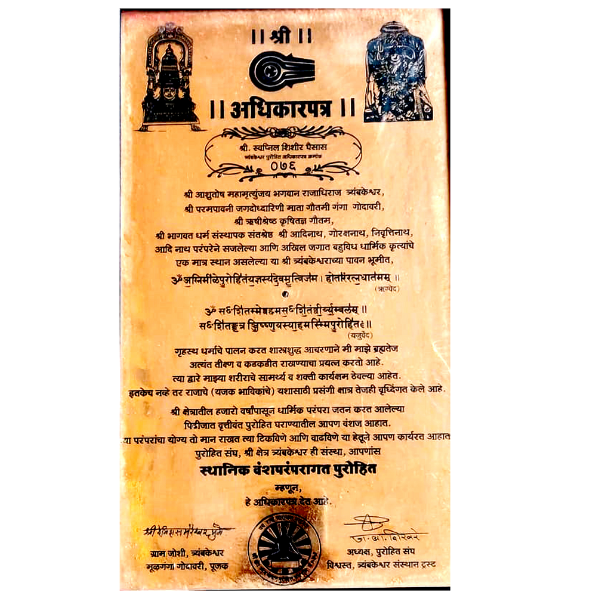 || श्री ||
|| अधिकारपत्र ||
श्री. स्वप्निल शिशीर पैसास
त्र्यंबकेश्वर पुरोहित अधिकारपत्र क्रमांक
०७६
श्री आशुतोष महामृत्युंजय भगवान राजाधिराज त्र्यंबकेश्वर,
श्री परमपावनी जगदोध्दारिणी माता गौतमी गंगा गोदावरी,
श्री ऋषीश्रेष्ठ कृषितज्ञ गौतम,
श्री भागवत धर्म संस्थापक संतश्रेष्ठ श्री आदिनाथ, गोरक्षनाथ, निवृत्तिनाथ,
आदि नाथ परंपरेने सजलेल्या आणि अखिल जगात बहुविध धार्मिक कृत्यांचे
एक मात्र स्थान असलेल्या या श्री त्र्यंबकेश्वराच्या पावन भूमीत,
ॐ अग्निमीळेपुरोहितंयज्ञस्यदेवमृत्विजम। होतारंरत्नधातमम् ॥
(ऋग्वेद)
(यजुर्वेद)
गृहस्थ धर्माचे पालन करत शास्त्रशुद्ध आचरणाने मी माझे ब्रह्मतेज
अत्यंत तीक्ष्ण व कडकडीत राखण्याचा प्रयत्न करतो आहे.
त्या द्वारे माझ्या शरीराचे सामर्थ्य व शक्ती कार्यक्षम ठेवल्या आहेत.
इतकेच नव्हे तर राजाचे (यजक भाविकांचे) यशासाठी प्रसंगी क्षात्र तेजही वृध्दिंगत केले आहे.
श्री क्षेत्रातील हजारो वर्षांपासून धार्मिक परंपरा जतन करत आलेल्या
पिढीजात वृत्तीवंत पुरोहित घराण्यातील आपण वंशज आहात.
या परंपरांचा योग्य तो मान राखत त्या टिकविणे आणि वाढविणे या हेतूने आपण कार्यरत आहात
पुरोहित संघ, श्री क्षेत्र त्र्यंबकेश्वर ही संस्था, आपणांस
स्थानिक वंशपरंपरागत पुरोहित
म्हणून,
हे अधिकारपत्र देत आहे.
ग्राम जोशी, त्र्यंबकेश्वर
मूळगंगा गोदावरी, पूजक
अध्यक्ष, पुरोहित संघ
विश्वस्त, त्र्यंबकेश्वर संस्थान ट्रस्ट